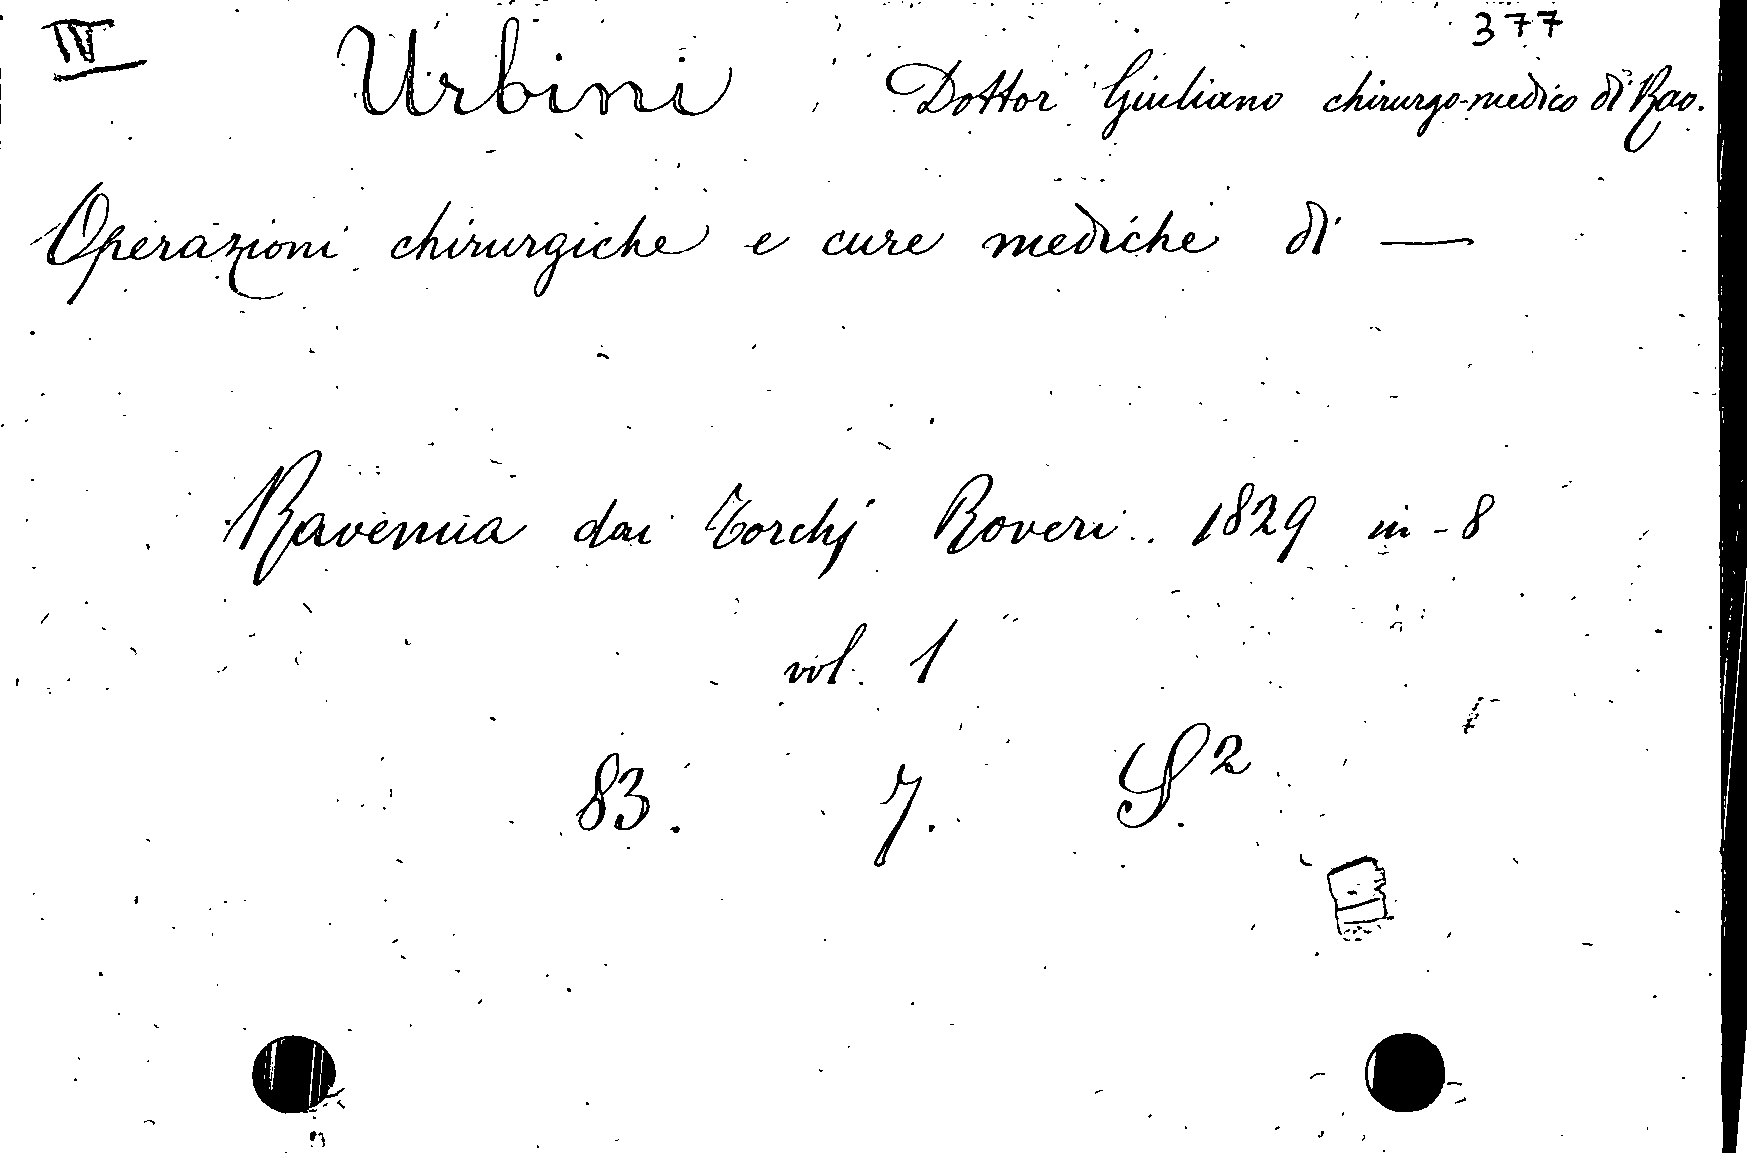 IV
377
Urbini Dottor Giuliano chirurgo-medico di Rav.
Operazioni chirurgiche e cure mediche di —
Ravenna dai Torchj Roveri 1829 in-8
vol. 1
83. 7. S²